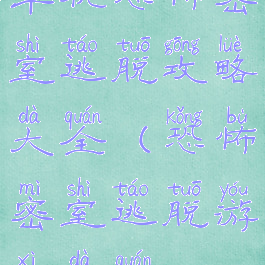 shì táo tuō gōng lüè
室逃脱攻略
dà quán kǒng bù
大全（恐怖
mì shì táo tuō yóu
密室逃脱游
xì dà quán